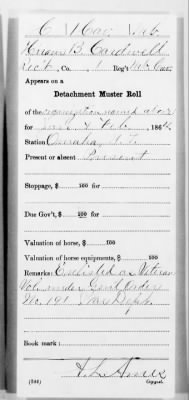 C | 1 Cav. | Neb.
Hiram B. Cardwell
Rect., Co. 1 Reg't Neb. Cav.
Appears on a
Detachment Muster Roll
of the organization named above
for Jan & Feb, 186
Station Omaha, N.T.
Present or absent Present
Stoppage, $ 100 for
Due Gov't, $ 100 for
Valuation of horse, $ 100
Valuation of horse equipments, $ 100
Remarks: Enlisted as Veteran
Vol. under Genl Orders
No. 191 War Dept.
Book mark:
(341)
Copyist.